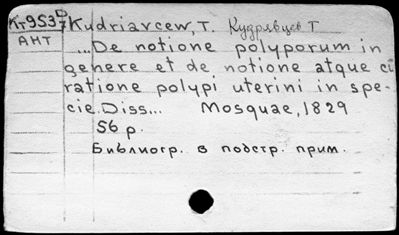 Кт953⁠7 D Kudriavcew, T. Кудрявцев Т
АНТ
...De notione polyporum in
genere et de notione atque cu
ratione polypi uterini in spe-
cie. Diss... Mosquae, 1829
56 p.
Библиогр. в подстр. прим.